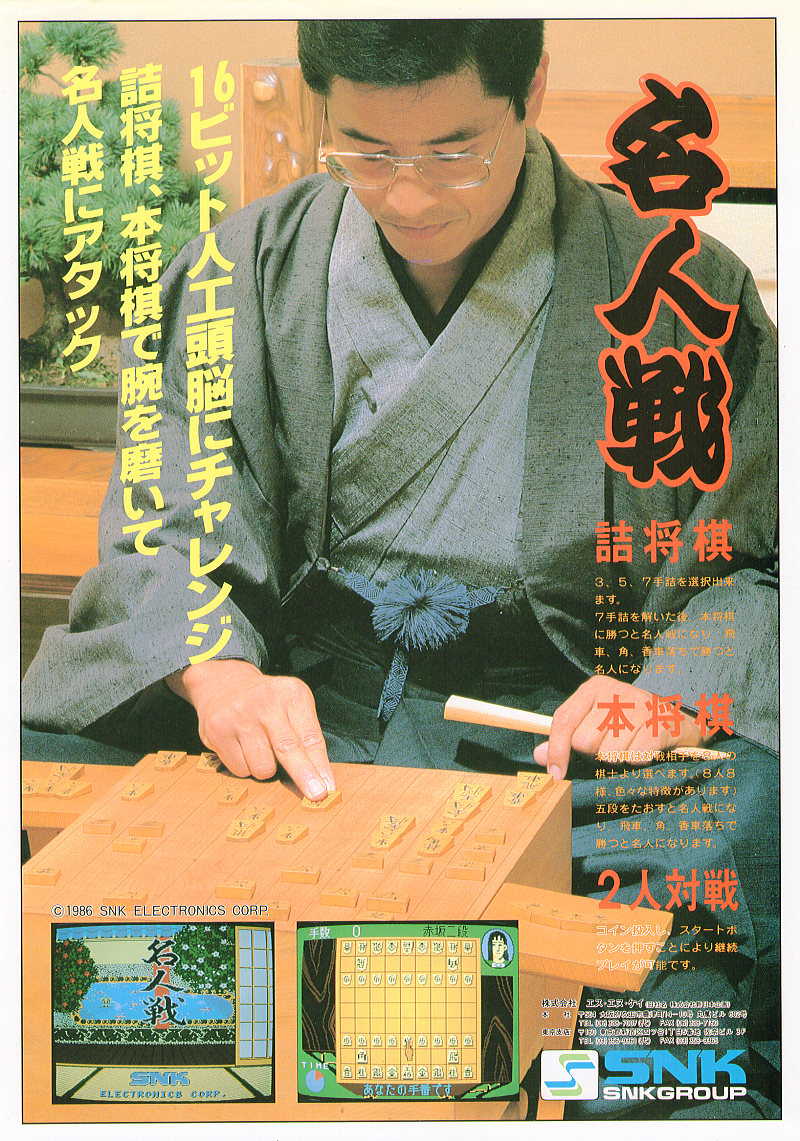 名人戦
16ビット人工頭脳にチャレンジ
詰将棋、本将棋で腕を磨いて
名人戦にアタック
詰将棋
3、5、7手詰を選択出来
ます。
7手詰を解いた後、本将棋
に勝つと名人戦になり、飛
車、角、香車落ちで勝つと
名人になります。
本将棋
本将棋は対戦相手を8人の
棋士より選べます。(8人8
様、色々な特徴があります)
五段をたおすと名人戦にな
り、飛車、角、香車落ちで
勝つと名人になります。
2人対戦
コイン投入し、スタートボ
タンを押すことにより継続
プレイが可能です。
©1986 SNK ELECTRONICS CORP.
名人戦
SNK
ELECTRONICS CORP.
手数 0 赤坂二段
TIME
あなたの手番です
株式会社 エス・エヌ・ケイ
本社
東京支店
SNK
SNKGROUP